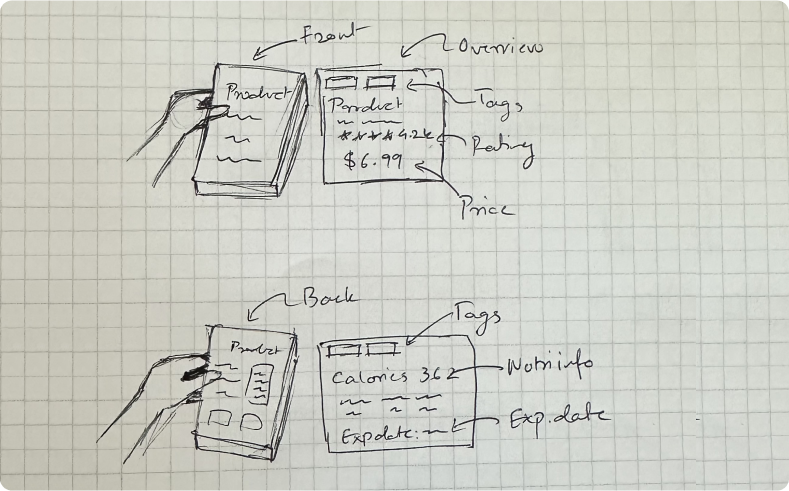 Front
Overview
Product
Tags
Product
4.2k
Rating
$6.99
Price
Back
Tags
Product
Calories 362
Nutri info
Exp.date
Exp date: